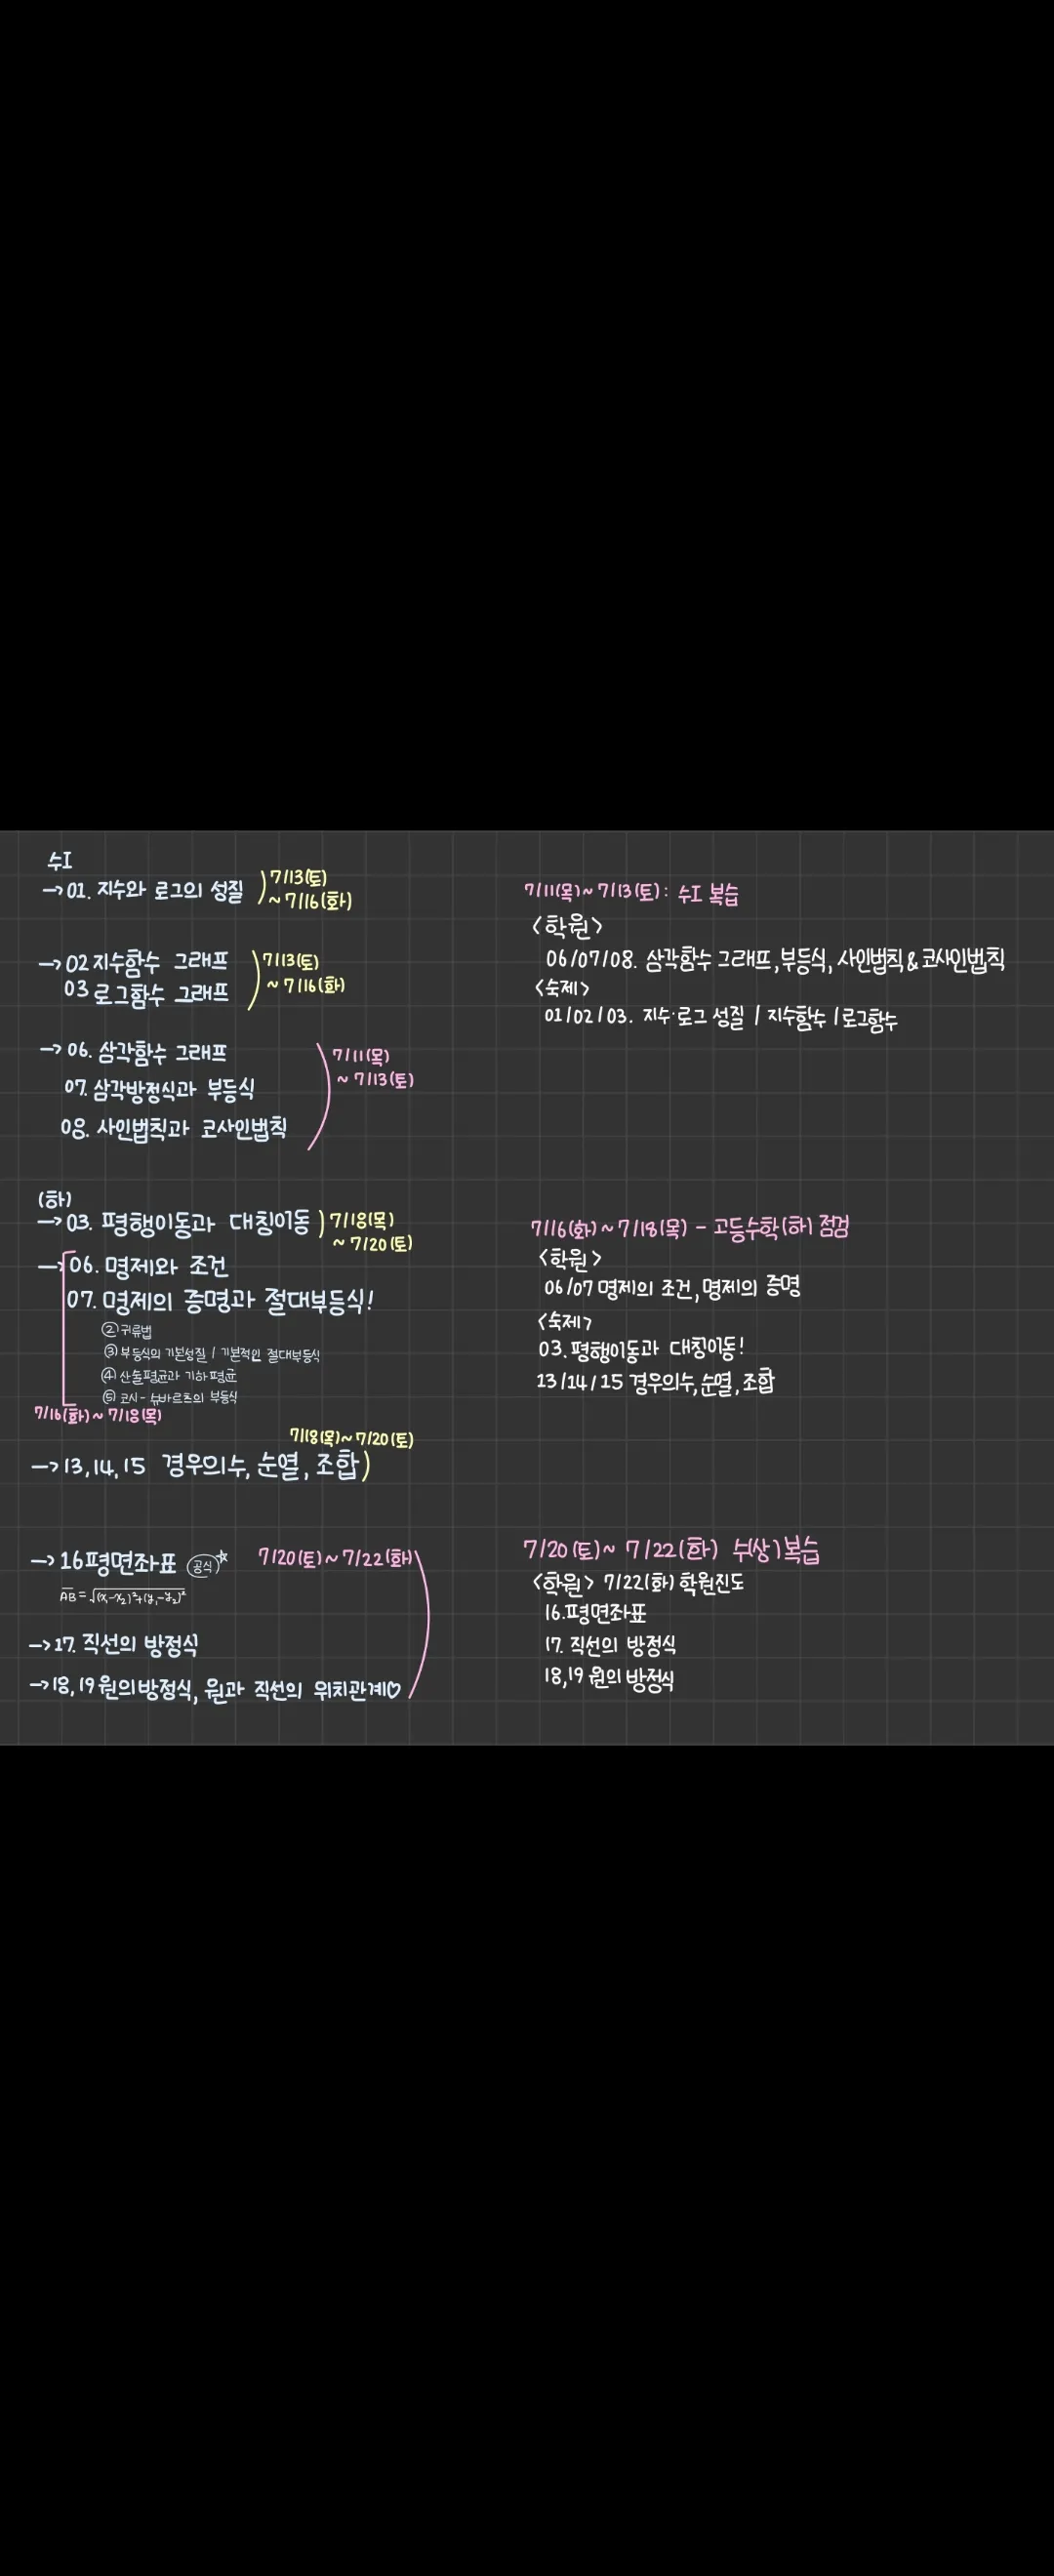 수I
→ 01. 지수와 로그의 성질
7/13(토)
~ 7/16(화)
→ 02 지수함수 그래프
03 로그함수 그래프
7/13(토)
~ 7/16(화)
→ 06. 삼각함수 그래프
07. 삼각방정식과 부등식
08. 사인법칙과 코사인법칙
7/11(목)
~ 7/13(토)
(하)
→ 03. 평행이동과 대칭이동
7/18(목)
~ 7/20(토)
→ 06. 명제와 조건
07. 명제의 증명과 절대부등식!
② 귀류법
③ 부등식의 기본성질 / 기본적인 절대부등식
④ 산술평균과 기하평균
⑤ 코시-슈바르츠의 부등식
7/16(화)~ 7/18(목)
7/18(목)~7/20(토)
→ 13, 14, 15 경우의수, 순열, 조합
→ 16 평면좌표 공식☆
7/20(토)~7/22(화)
AB = √(x₁-x₂)²+(y₁-y₂)²
→ 17. 직선의 방정식
→ 18, 19 원의 방정식, 원과 직선의 위치관계♡
7/11(목)~ 7/13(토): 수I 복습
<학원>
06/07/08. 삼각함수 그래프, 부등식, 사인법칙 & 코사인법칙
<숙제>
01/02/03. 지수·로그 성질 / 지수함수 / 로그함수
7/16(화)~ 7/18(목) - 고등수학(하) 점검
<학원>
06/07 명제의 조건, 명제의 증명
<숙제>
03. 평행이동과 대칭이동!
13/14/15 경우의수, 순열, 조합
7/20(토)~ 7/22(화) 수(상) 복습
<학원> 7/22(화) 학원진도
16. 평면좌표
17. 직선의 방정식
18,19 원의 방정식